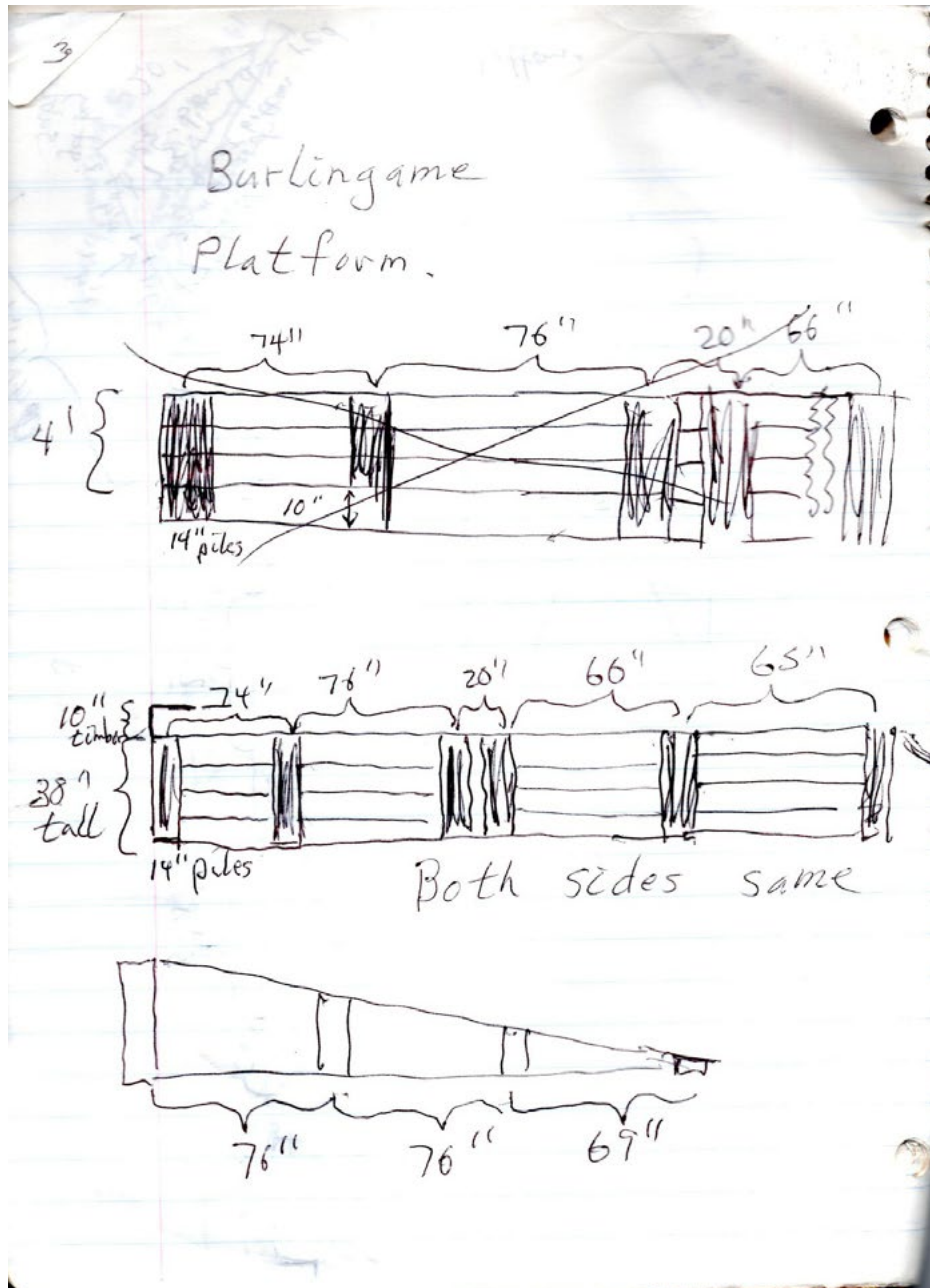 3
Burlingame
Platform.
74" 76" 20" 66"
4'
10"
14" piles
74" 76" 20" 66" 65"
10"
timber
38"
tall
14" piles
Both sides same
76" 76" 69"